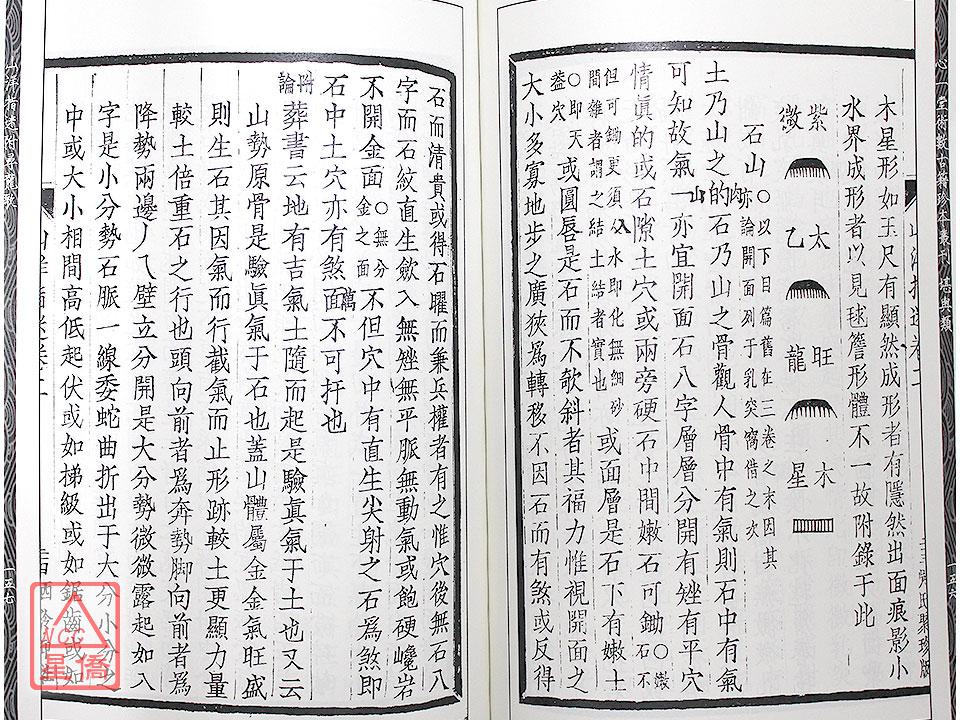 木星形如玉尺有顯然成形者有隱然出面痕影小
水界成形者以見毬簷形體不一故附錄于此
紫微 太乙 旺龍 木星
石山○以下目篇舊在三卷之末因其
亦論開面列于乳突窩借之次
土乃山之的肉石乃山之骨觀人骨中有氣則石中有氣
可知故氣一山亦宜開面石八字層層分開有矬有平穴
情眞的或石隙土穴或兩旁硬石中間嫩石可鋤○嫩不
但可鋤更須入水即化無細砂
間雜者謂之結土結者實也或面層是石下有嫩土
○即天
葢穴或圓唇是石而不欹斜者其福力惟視開面之
大小多寡地步之廣狹爲轉移不因石而有煞或反得
石而清貴或得石曜而秉兵權者有之惟穴後無石八
字而石紋直生歛入無矬無平脈無動氣或飽硬巉岩
不開金面○無分
金之面不但穴中有直生尖射之石爲煞即
石中土穴亦有煞面萬不可扦也
附論葬書云地有吉氣土隨而起是驗眞氣于土也又云
山勢原骨是驗眞氣于石也蓋山體屬金金氣旺盛
則生石其因氣而行截氣而止形跡較土更顯力量
較土倍重石之行也頭向前者爲奔勢脚向前者爲
降勢兩邊丿乀壁立分開是大分勢微微露起如入
字是小分勢石脈一線委蛇曲折出于大分小分之
中或大小相間高低起伏或如梯級或如鋸齒或如
山洋指迷卷二
一五六
一五七
NCC
星僑